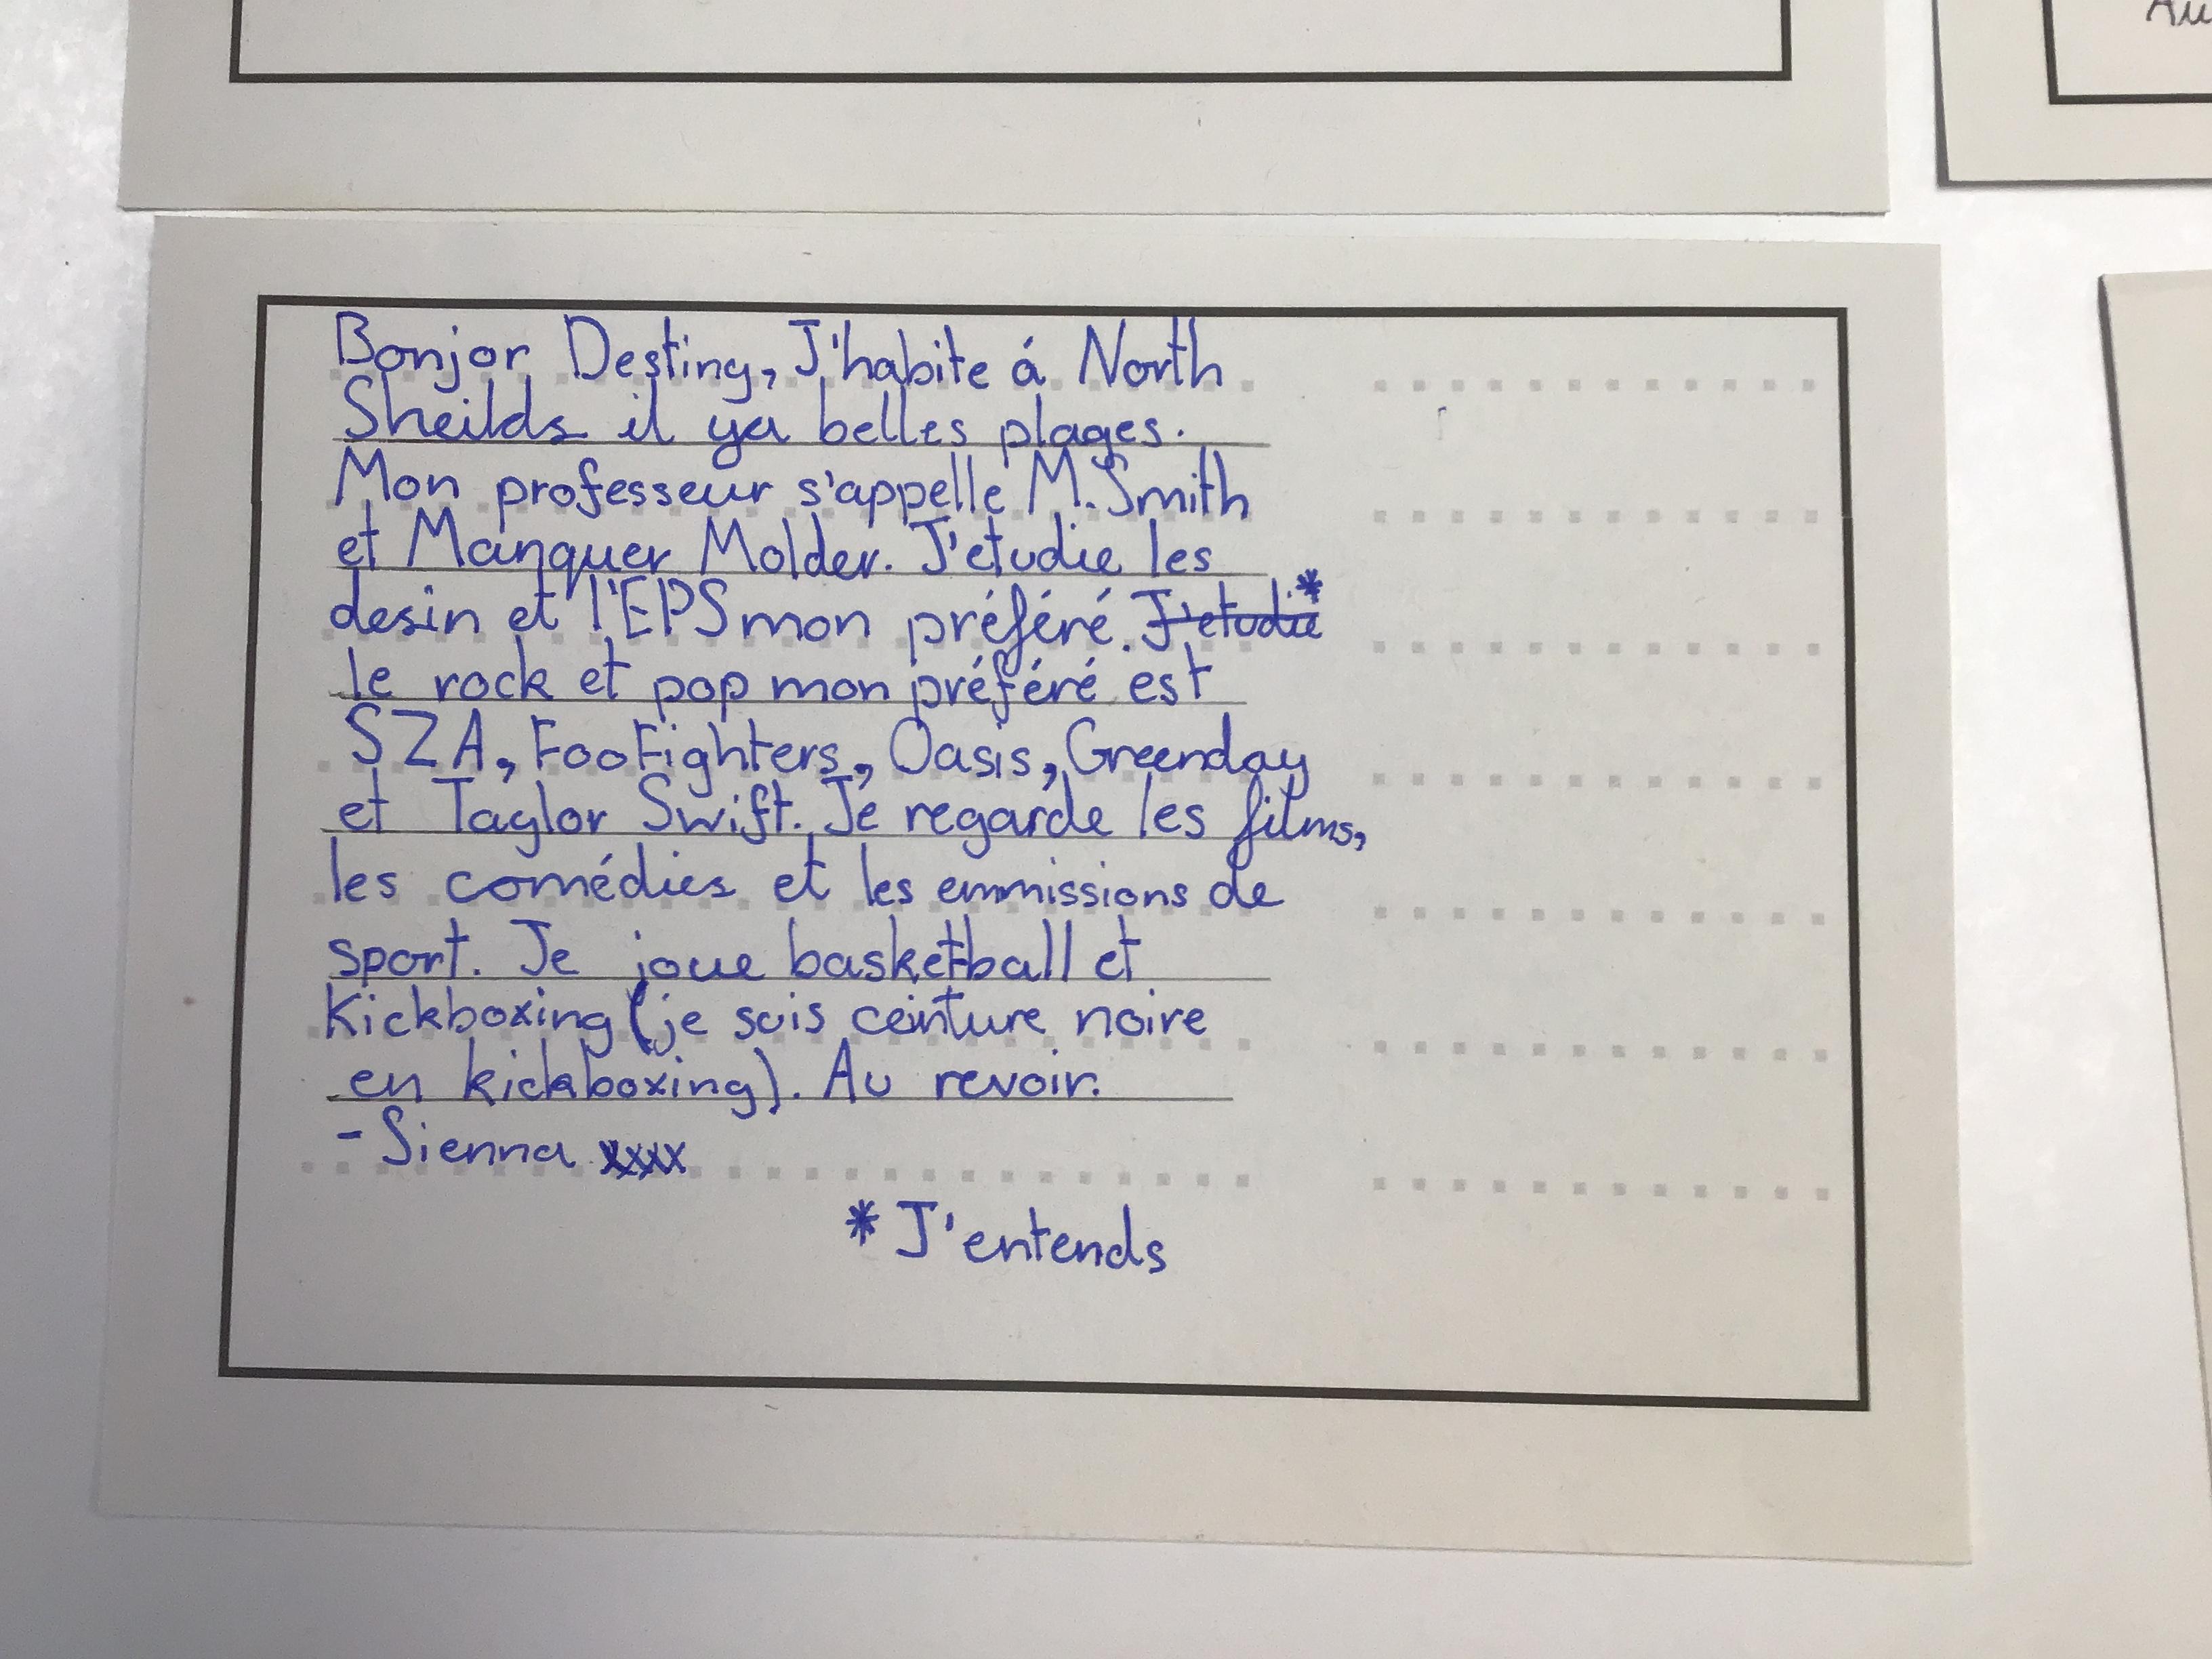 Au
Bonjor Destiny, J'habite á North
Sheilds il ya belles plages.
Mon professeur s'appelle M.Smith
et Manquer Molder. J'etudie les
desin et l'EPS mon préféré. J'etudie*
le rock et pop mon préféré est
SZA, Foo Fighters, Oasis, Greenday
et Taylor Swift. Je regarde les films,
les comédies et les emmissions de
sport. Je joue basketball et
Kickboxing (je suis ceinture noire
en kickboxing). Au revoir.
- Sienna xxxx
* J'entends